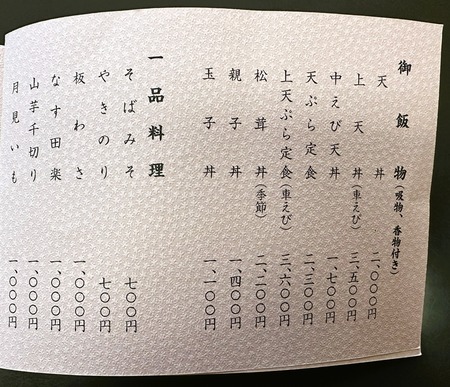 御飯物(吸物、香物付き)
天丼 二、〇〇〇円
上天丼(車えび) 三、五〇〇円
中えび天丼 一、七〇〇円
天ぷら定食 二、三〇〇円
上天ぷら定食(車えび) 三、六〇〇円
松茸丼(季節) 二、二〇〇円
親子丼 一、四〇〇円
玉子丼 一、一〇〇円
一品料理
そばみそ 七〇〇円
やきのり 七〇〇円
板わさ 一、〇〇〇円
なす田楽 一、〇〇〇円
山芋千切り 一、〇〇〇円
月見いも 一、〇〇〇円